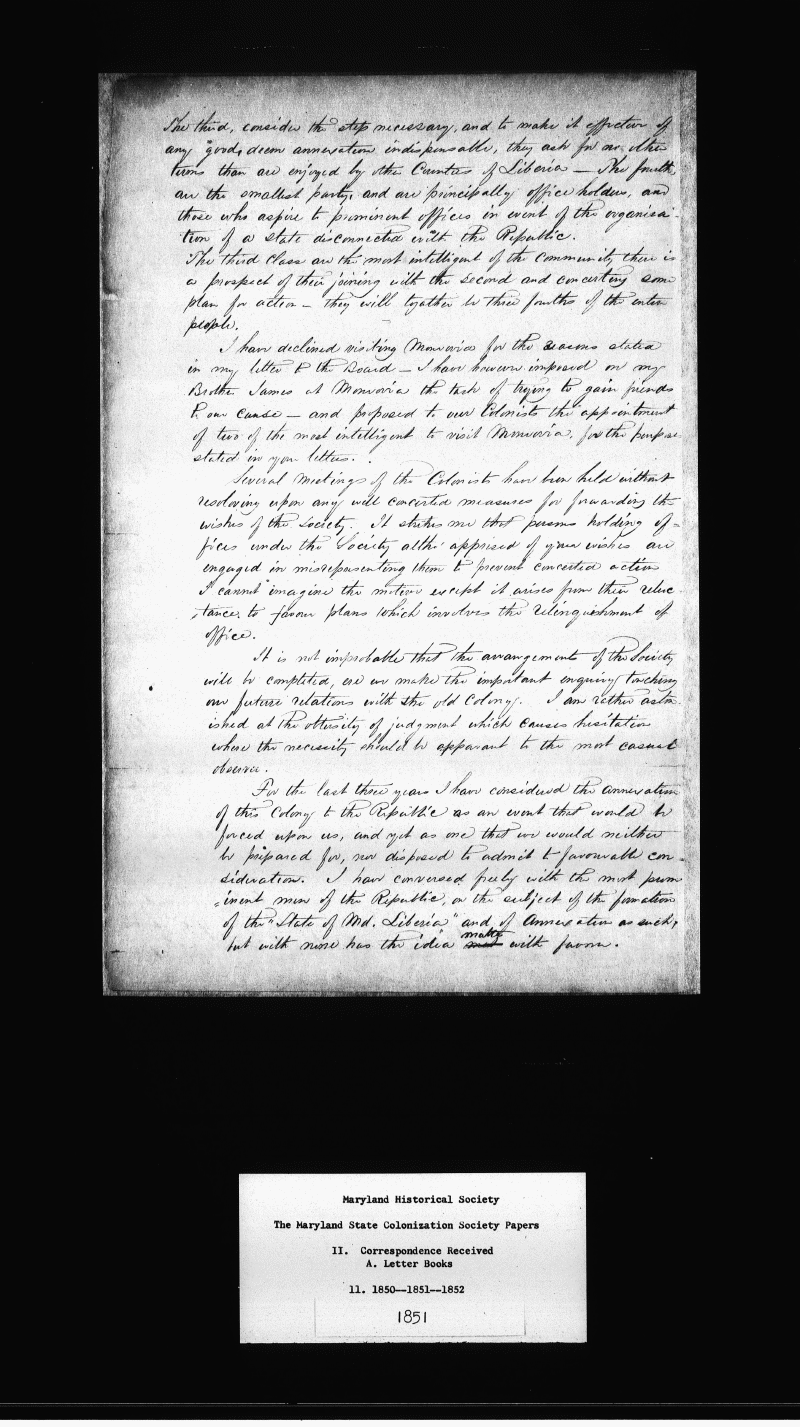 The third, consider the step necessary, and to make it effective of
any good, deem annexation indispensable, they ask for no other
terms than are enjoyed by other Counties of Liberia — The fourth,
are the smallest party, and are principally office holders, and
those who aspire to prominent offices in event of the organisa-
tion of a state disconnected with the Republic.
The third Class are the most intelligent of the community there is
a prospect of their joining with the second and concerting some
plan for action — they will together be three fourths of the entire
people.
I have declined visiting Monrovia for the reasons stated
in my letter to the Board — I have however imposed on my
Brother James at Monrovia the task of trying to gain friends
to our cause — and proposed to our Colonists the appointment
of two of the most intelligent to visit Monrovia, for the purpose
stated in your letters.
Several meetings of the Colonists have been held without
resolving upon any well concerted measures for forwarding the
wishes of the Society. It strikes me that persons holding of=
fices under the Society altho' apprised of your wishes are
engaged in misrepresenting them to prevent concerted action
I cannot imagine the motive except it arises from their reluc-
tance, to favour plans which involves the relinquishment of
office.
It is not improbable that the arrangements of the Society
will be completed, ere we make the important enquiry touching
our future relations with the old Colony. I am rather aston
ished at the obtusity of judgment which causes hesitation
where the necessity should be apparant to the most casual
observer.
For the last three years I have considered the annexation
of this Colony to the Republic as an event that would be
forced upon us, and yet as one that we would neither
be prepared for, nor disposed to admit to favourable con-
sideration. I have conversed freely with the most prom
=inent men of the Republic, on the subject of the formation
of the "State of Md. Liberia" and of Annexation as such,
but with none has the idea matter with favour.
Maryland Historical Society
The Maryland State Colonization Society Papers
II. Correspondence Received
A. Letter Books
11. 1850--1851--1852
1851